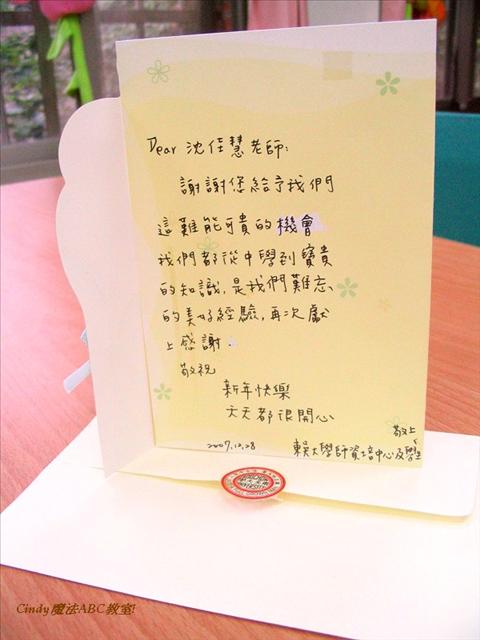 Dear 沈佳慧老師:
謝謝您給予我們
這難能可貴的機會
我們都從中學到寶貴
的知識,是我們難忘
的美好經驗,再次獻
上感謝.
敬祝
新年快樂
天天都很開心
敬上
2007.12.28 東吳大學師資培中心及學生
Cindy魔法ABC教室!